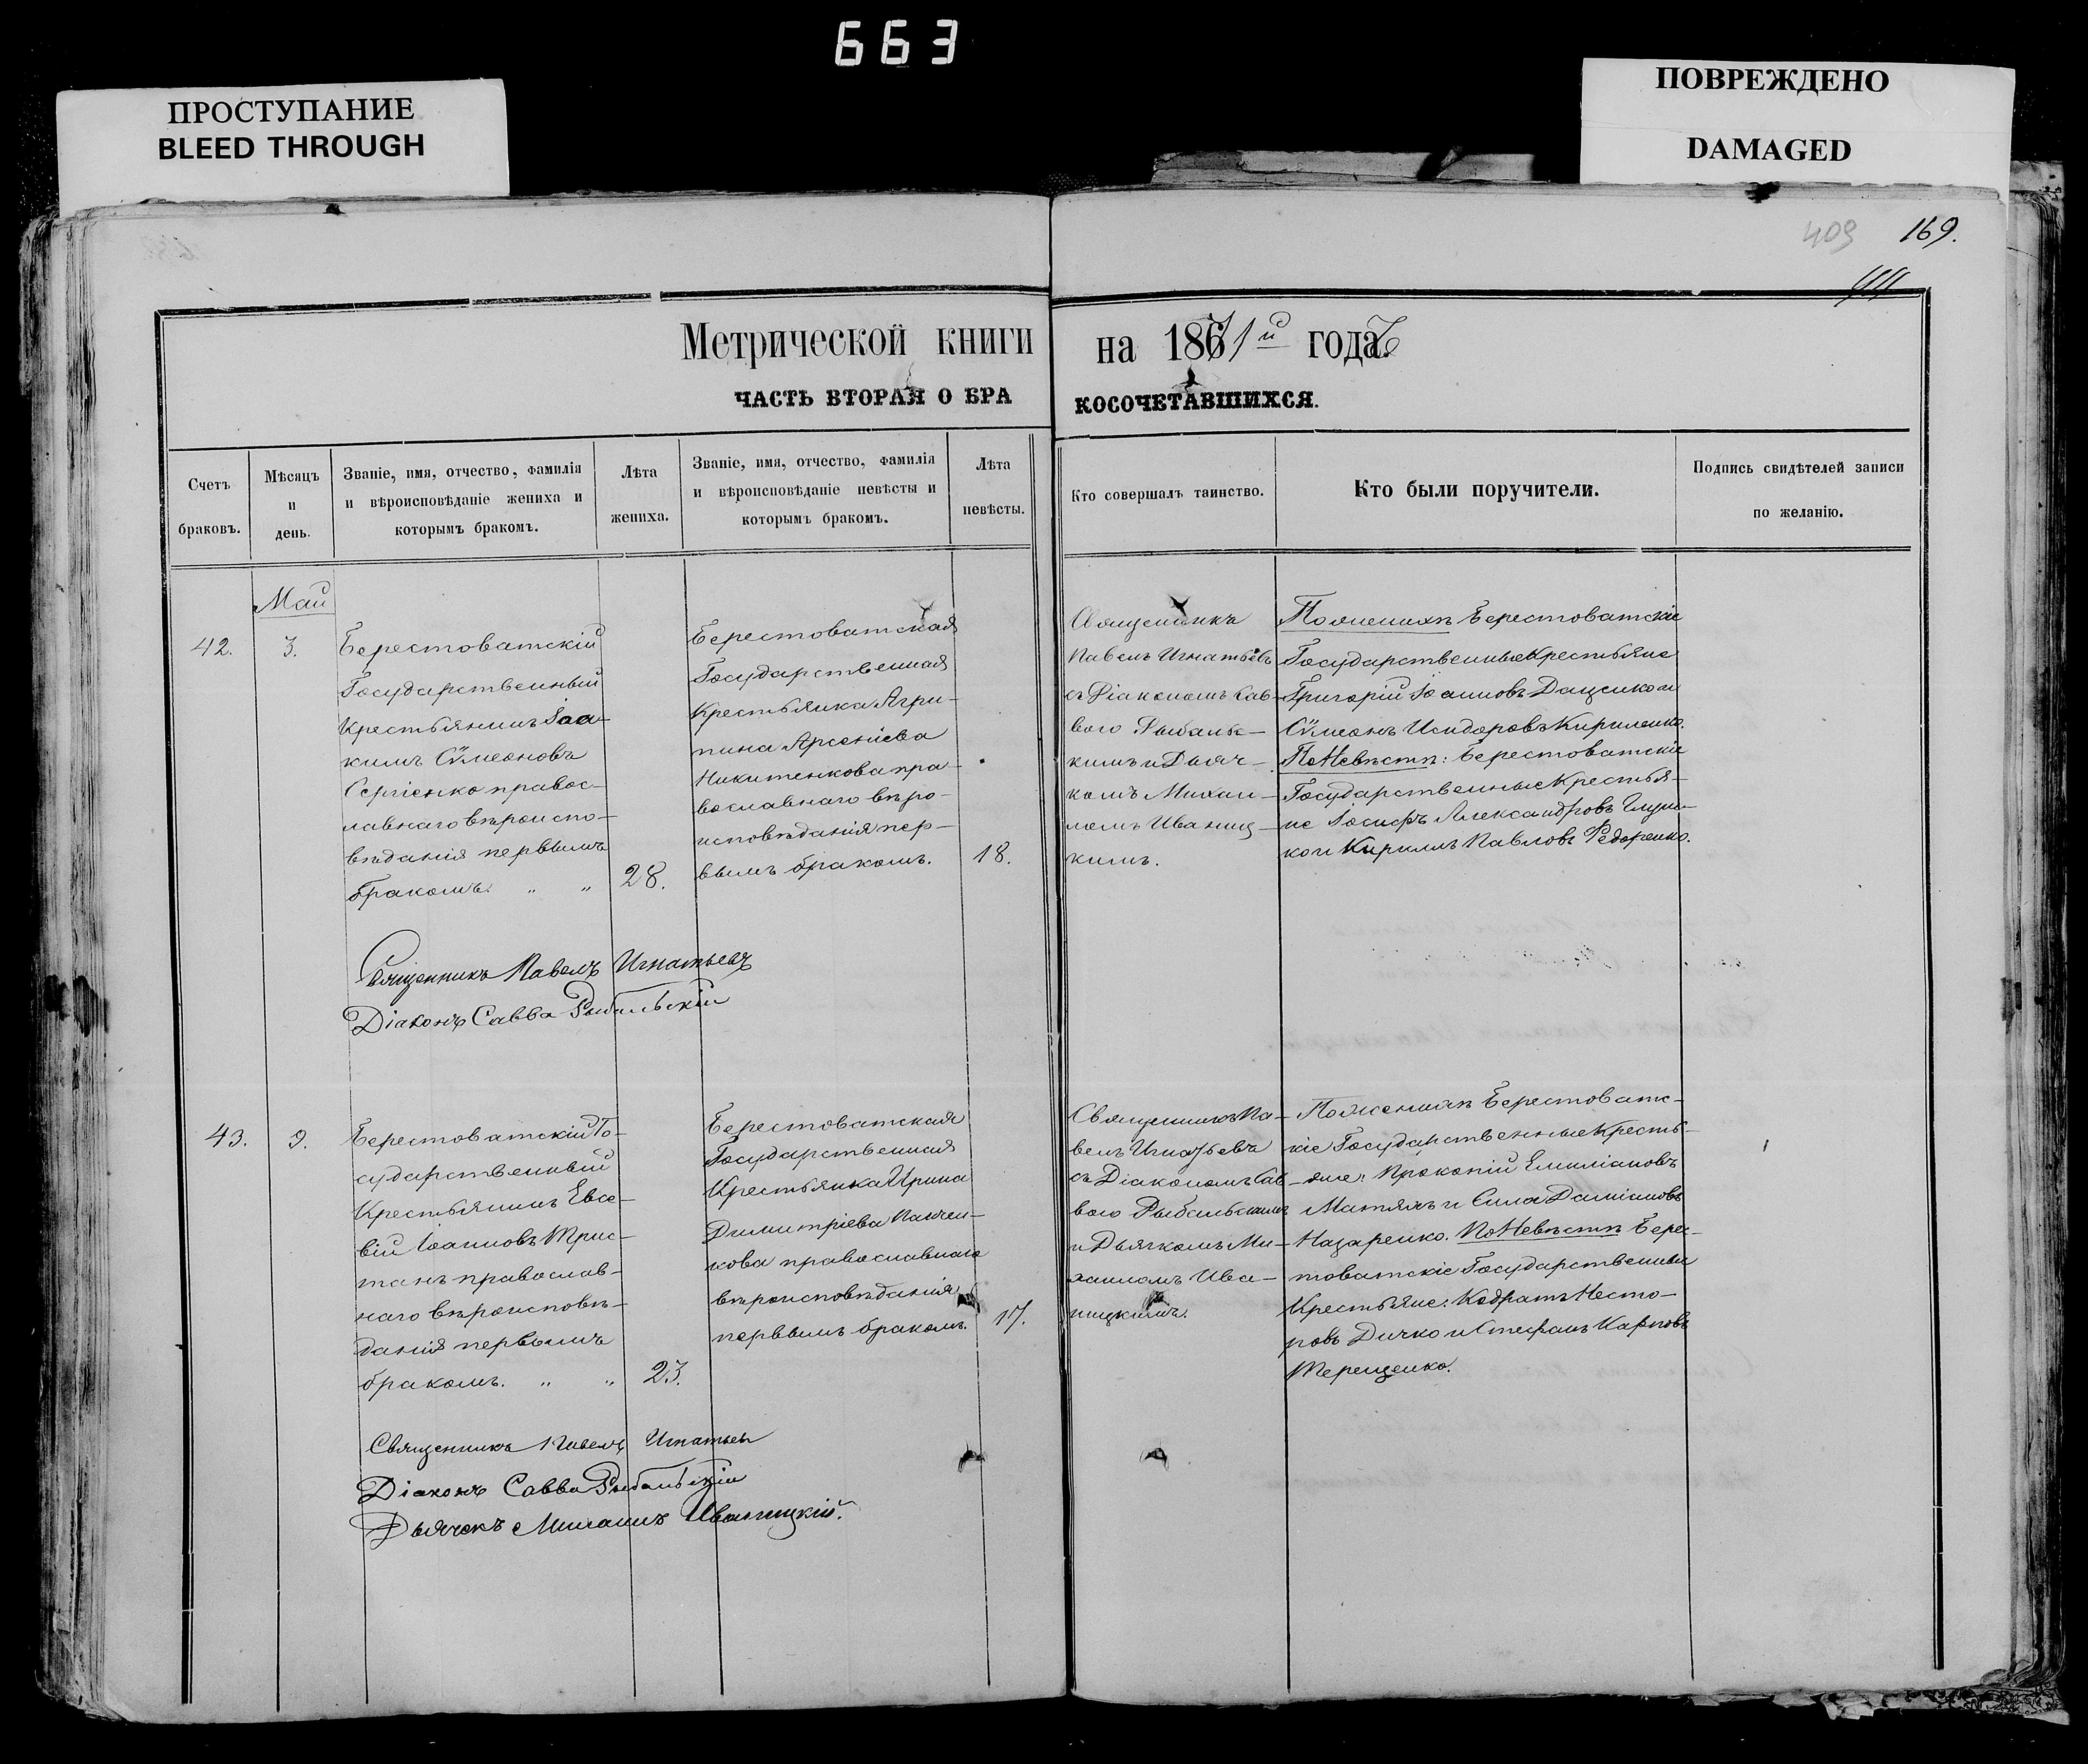 663
ПРОСТУПАНИЕ
BLEED THROUGH
ПОВРЕЖДЕНО
DAMAGED
409 169.
Метрической книги на 1871й года
ЧАСТЬ ВТОРАЯ О БРАКОСОЧЕТАВШИХСЯ.
Счетъ
браковъ.
Мѣсяцъ
и
день.
Званіе, имя, отчество, фамилія
и вѣроисповѣданіе жениха и
которымъ бракомъ.
Лѣта
жениха.
Званіе, имя, отчество, фамилія
и вѣроисповѣданіе невѣсты и
которымъ бракомъ.
Лѣта
невѣсты.
Кто совершалъ таинство.
Кто были поручители.
Подпись свидѣтелей записи
по желанію.
Май
42.
3.
Берестоватскій
Государственный
Крестьянинъ Іоа-
кимъ Сѵмеоновъ
Сергіенко правос-
лавнаго вѣроиспо-
вѣданія первымъ
бракомъ. „ „
28.
Берестоватская
Государственная
Крестьянка Агри-
пина Арсеніева
Никитенкова пра-
вославнаго вѣро-
исповѣданія пер-
вымъ бракомъ.
18.
Священникъ
Павелъ Игнатьевъ
съ Діакономъ Сав-
вою Рыбальс-
кимъ и Дьяч-
комъ Михаи-
ломъ Иваниц-
кимъ.
По женихѣ Берестоватскіе
Государственные Крестьяне
Григорій Іоанновъ Даценко и
Сѵмеонъ Исидоровъ Кириленко.
По Невѣстѣ: Берестоватскіе
Государственные Крестья-
не Іосифъ Александровъ Глущен-
ко и Кирилъ Павловъ Федоренко.
Священникъ Павелъ Игнатьевъ
Діаконъ Савва Рыбальскій
43.
9.
Берестоватскій Го-
сударственный
Крестьянинъ Евсе-
вій Іоанновъ Трис-
танъ православ-
наго вѣроисповѣ-
данія первымъ
бракомъ. „ „
23.
Берестоватская
Государственная
Крестьянка Ирина
Димитріева Панчен-
кова православнаго
вѣроисповѣданія
первымъ бракомъ.
17.
Священникъ Па-
велъ Игнатьевъ
съ Діакономъ Сав-
вою Рыбальскимъ
и Дьячкомъ Ми-
хаиломъ Ива-
ницкимъ.
По женихѣ Берестоватс-
кіе Государственные Кресть-
яне: Прокопій Емиліановъ
Матяхъ и Сила Даміановъ
Назаренко. По Невѣстѣ Берес-
товатскіе Государственные
Крестьяне: Кодратъ Несто-
ровъ Дичко и Стефанъ Карповъ
Терещенко.
Священникъ Павелъ Игнатьевъ
Діаконъ Савва Рыбальскій
Дьячекъ Михаилъ Иваницкій.